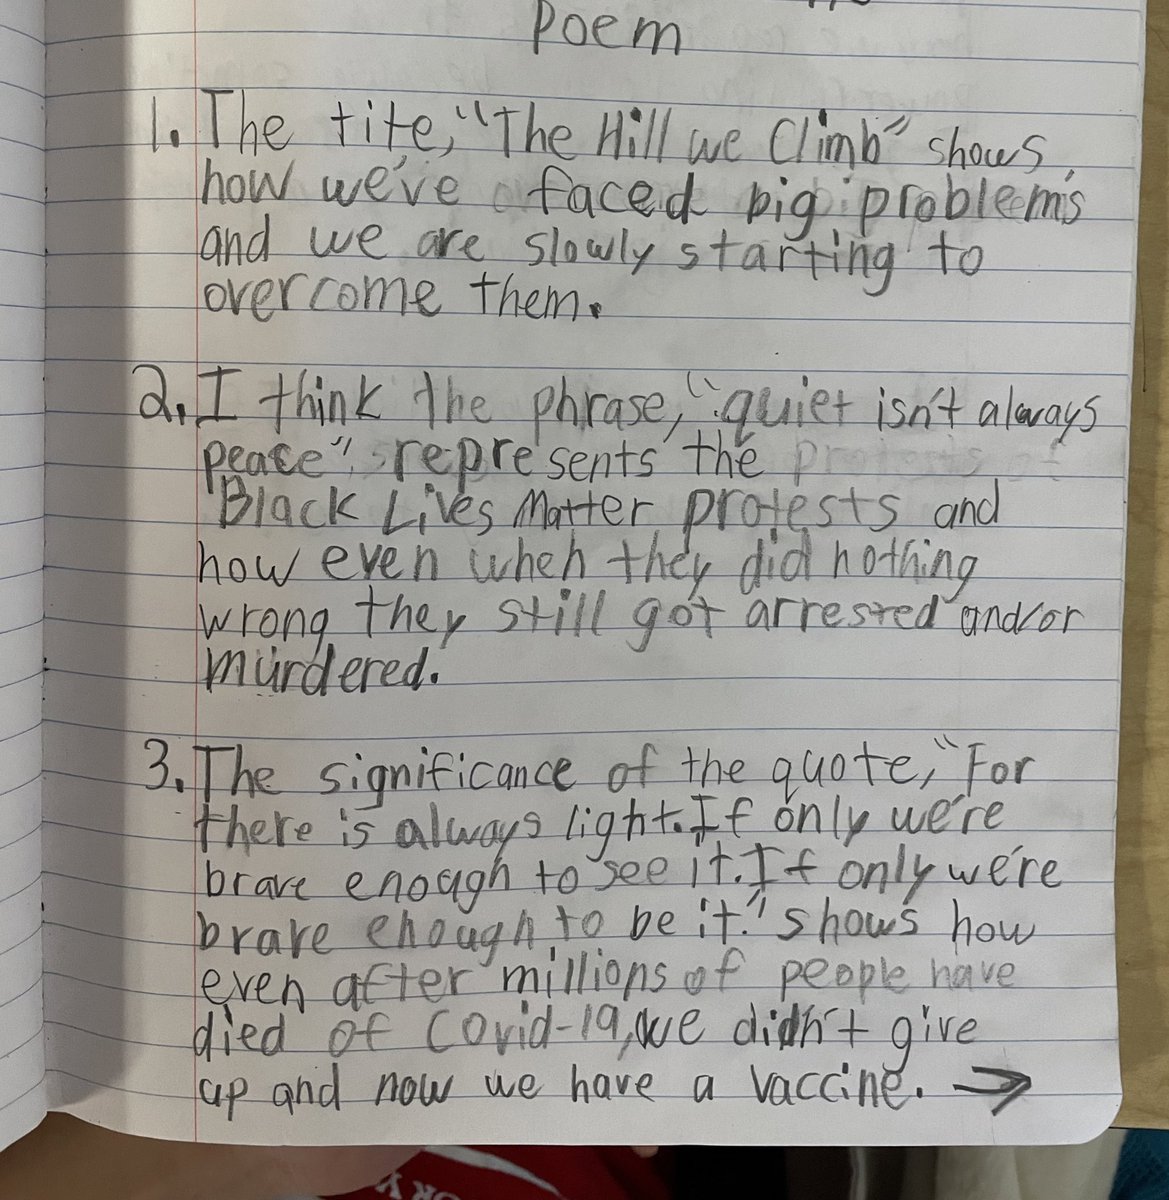 Poem
1. The tite, "The Hill we Climb" shows
how we've faced big problems
and we are slowly starting to
overcome them.
2. I think the phrase, "quiet isn't always
peace", represents the
Black Lives Matter protests and
how even when they did nothing
wrong they still got arrested and/or
murdered.
3. The significance of the quote, "For
there is always light. If only we're
brave enough to see it. If only we're
brave enough to be it." shows how
even after millions of people have
died of Covid-19, we didn't give
up and now we have a vaccine. →